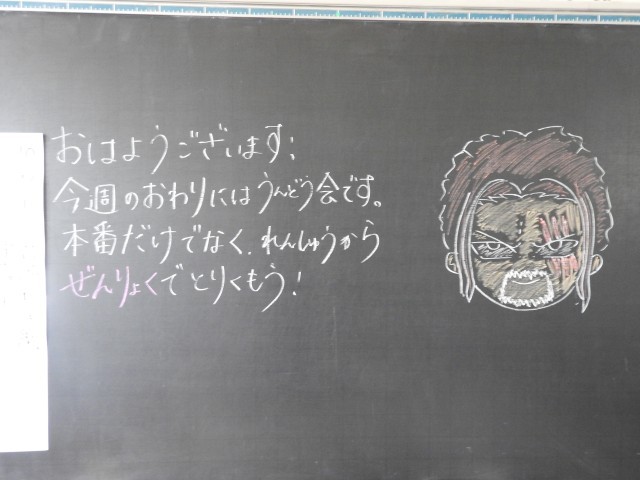 おはようございます！
今週のおわりにはうんどう会です。
本番だけでなく、れんしゅうから
ぜんりょくでとりくもう！